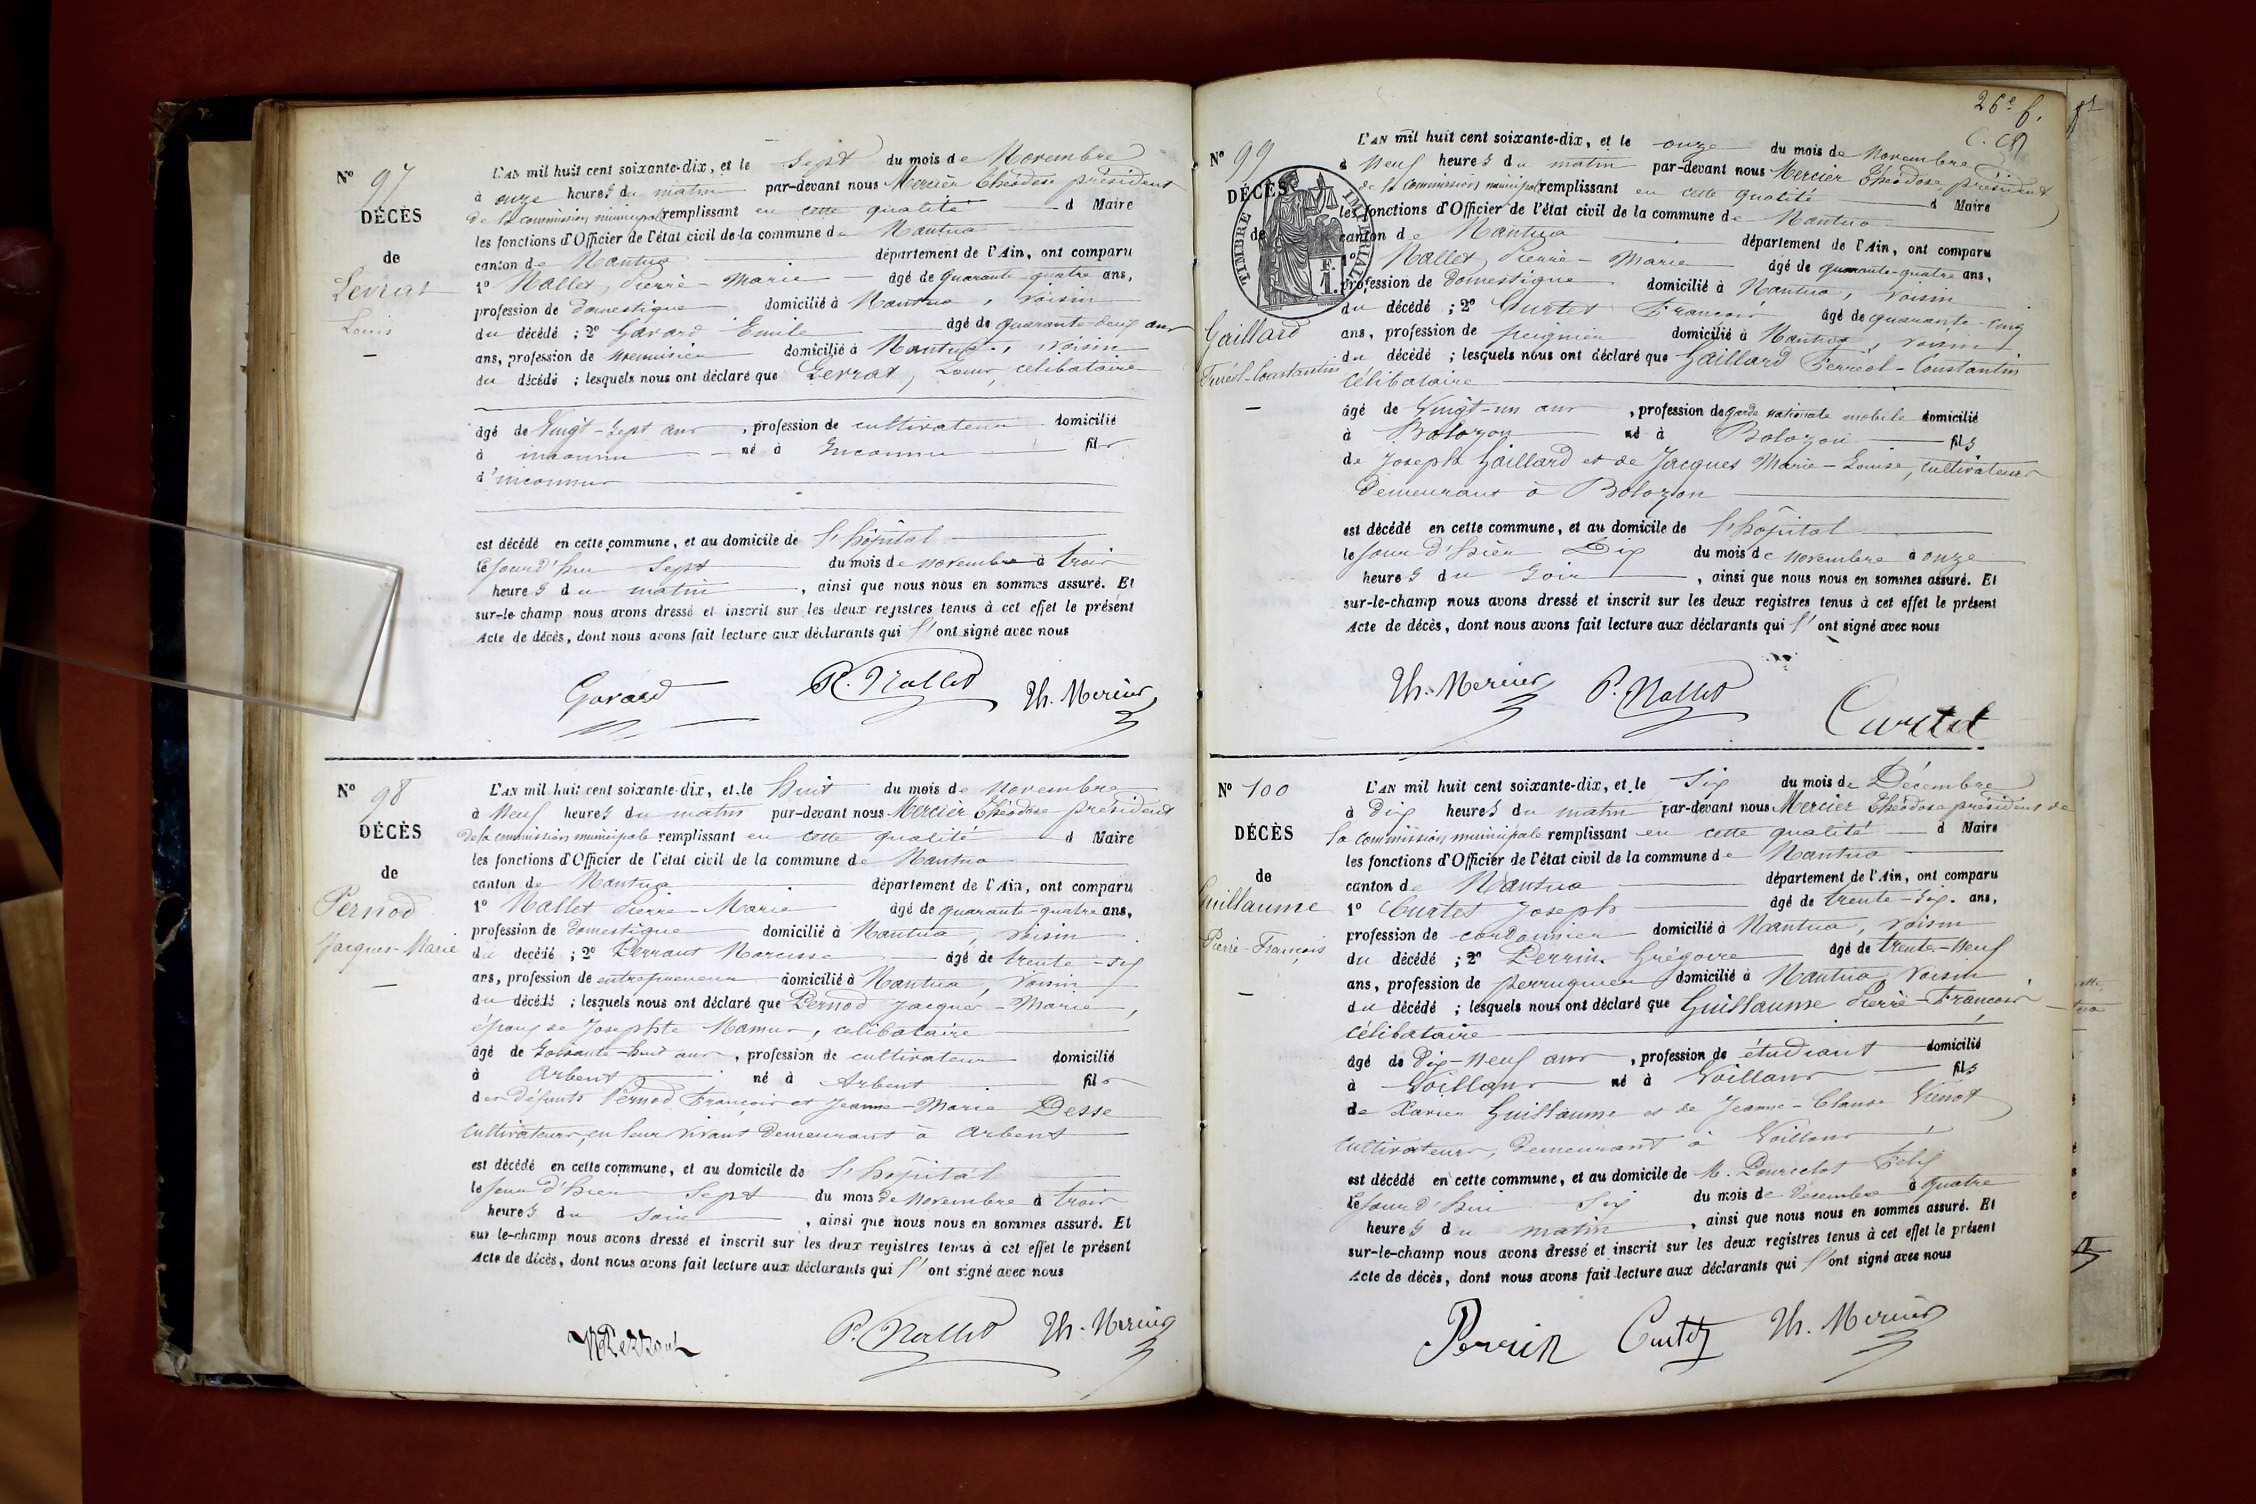 Nº 97
DÉCÈS
de
Levrat
Louis
L'AN mil huit cent soixante-dix, et le sept du mois de Novembre
à onze heures du matin par-devant nous Mercier Théodose président
de la commission municipale remplissant en cette qualité d Maire
les fonctions d'Officier de l'état civil de la commune de Nantua
canton de Nantua département de l'Ain, ont comparu
1º Nallet, Pierre-Marie âgé de quarante-quatre ans,
profession de domestique domicilié à Nantua, voisin
du décédé ; 2º Gavard Emile âgé de quarante-deux ans
ans, profession de menuisier domicilié à Nantua, voisin
du décédé ; lesquels nous ont déclaré que Levrat, Louis, célibataire
âgé de vingt-sept ans, profession de cultivateur domicilié
à inconnu né à Inconnu fils
d'inconnus
est décédé en cette commune, et au domicile de l'hôpital
le jourd'hui sept du mois de novembre à trois
heures du matin, ainsi que nous nous en sommes assuré. Et
sur-le-champ nous avons dressé et inscrit sur les deux registres tenus à cet effet le présent
Acte de décès, dont nous avons fait lecture aux déclarants qui l'ont signé avec nous
Gavard P. Nallet Th. Mercier
Nº 98
DÉCÈS
de
Pernod
Jacques-Marie
L'AN mil huit cent soixante-dix, et le huit du mois de novembre
à neuf heures du matin par-devant nous Mercier Théodose président
de la commission municipale remplissant en cette qualité d Maire
les fonctions d'Officier de l'état civil de la commune de Nantua
canton de Nantua département de l'Ain, ont comparu
1º Nallet Pierre-Marie âgé de quarante-quatre ans,
profession de domestique domicilié à Nantua, voisin
du décédé ; 2º Perraut Narcisse âgé de trente-six
ans, profession de entrepreneur domicilié à Nantua, voisin
du décédé ; lesquels nous ont déclaré que Pernod Jacques-Marie,
époux de Josephte Mamur, célibataire
âgé de soixante-huit ans, profession de cultivateur domicilié
à Arbent né à Arbent fils
des défunts Pernod François et Jeanne-Marie Desse
cultivateurs, en leur vivant demeurant à Arbent
est décédé en cette commune, et au domicile de l'hôpital
le jour d'hier sept du mois de novembre à trois
heures du soir, ainsi que nous nous en sommes assuré. Et
sur le-champ nous avons dressé et inscrit sur les deux registres tenus à cet effet le présent
Acte de décès, dont nous avons fait lecture aux déclarants qui l'ont signé avec nous
P. Nallet Th. Mercier
26e f.
Nº 99
DÉCÈS
de
TIMBRE IMPÉRIAL
Gaillard
Ferréol-Constantin
L'AN mil huit cent soixante-dix, et le onze du mois de novembre
à neuf heures du matin par-devant nous Mercier Théodose président
de la commission municipale remplissant en cette qualité d Maire
les fonctions d'Officier de l'état civil de la commune de Nantua
canton de Nantua département de l'Ain, ont comparu
1º Nallet, Pierre-Marie âgé de quarante-quatre ans,
profession de domestique domicilié à Nantua, voisin
du décédé ; 2º Curtet François âgé de quarante-cinq
ans, profession de peignier domicilié à Nantua, voisin
du décédé ; lesquels nous ont déclaré que Gaillard Ferréol-Constantin
célibataire
âgé de vingt-un ans, profession de garde nationale mobile domicilié
à Bolozon né à Bolozon fils
de Joseph Gaillard et de Jacques Marie-Louise, cultivateurs
demeurant à Bolozon
est décédé en cette commune, et au domicile de l'hôpital
le jour d'hier dix du mois de novembre à onze
heures du soir, ainsi que nous nous en sommes assuré. Et
sur-le-champ nous avons dressé et inscrit sur les deux registres tenus à cet effet le présent
Acte de décès, dont nous avons fait lecture aux déclarants qui l'ont signé avec nous
Th. Mercier P. Nallet Curtet
Nº 100
DÉCÈS
de
Guillaume
Pierre-François
L'AN mil huit cent soixante-dix, et le six du mois de Décembre
à dix heures du matin par-devant nous Mercier Théodose président de
la commission municipale remplissant en cette qualité d Maire
les fonctions d'Officier de l'état civil de la commune de Nantua
canton de Nantua département de l'Ain, ont comparu
1º Curtet Joseph âgé de trente-six ans,
profession de cordonnier domicilié à Nantua, voisin
du décédé ; 2º Perrin Grégoire âgé de trente-neuf
ans, profession de perruquier domicilié à Nantua, voisin
du décédé ; lesquels nous ont déclaré que Guillaume Pierre-François
célibataire
âgé de dix-neuf ans, profession de étudiant domicilié
à Voillans né à Voillans fils
de Xavier Guillaume et de Jeanne-Claude Vienot
cultivateurs, demeurant à Voillans
est décédé en cette commune, et au domicile de M. Pourielot Félix
le jourd'hui six du mois de décembre à quatre
heures du matin, ainsi que nous nous en sommes assuré. Et
sur-le-champ nous avons dressé et inscrit sur les deux registres tenus à cet effet le présent
Acte de décès, dont nous avons fait lecture aux déclarants qui l'ont signé avec nous
Perrin Curtet Th. Mercier